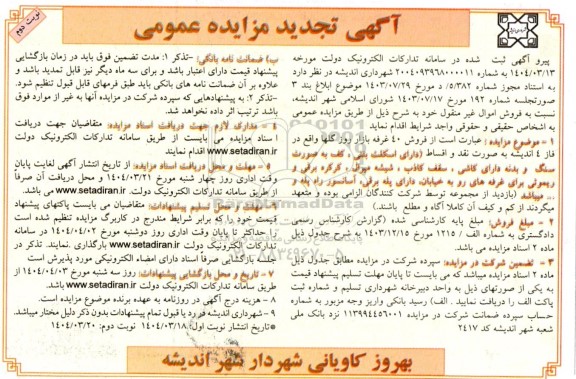 آگهی تجدید مزایده عمومی
نوبت دوم
پیرو آگهی ثبت شده در سامانه تدارکات الکترونیک دولت مورخه
۱۴۰۴/۰۳/۱۳ به شماره ۲۰۰۴۰۹۳۹۶۸۰۰۰۰۱۱ شهرداری اندیشه در نظر دارد
به استناد مجوز شماره ۵/۳۸۲/د مورخ ۱۴۰۳/۰۷/۲۹ موضوع ابلاغ بند ۳
صورتجلسه شماره ۱۹۲ مورخ ۱۴۰۳/۰۷/۱۷ شورای اسلامی شهر اندیشه،
نسبت به فروش اموال غیر منقول خود به شرح ذیل از طریق مزایده عمومی
به اشخاص حقیقی و حقوقی واجد شرایط اقدام نماید
۱ – موضوع مزایده : عبارت است از فروش ۴۰ غرفه بازار روز گلها واقع در
فاز ۴ اندیشه به صورت نقد و اقساط (دارای اسکلت بتنی ، کف به صورت
سنگ و بدنه دارای کاشی ، سقف کاذب ، شیشه میرال ، کرکره برقی و
ریموتی برای غرفه های رو به خیابان دارای پله برقی، آسانسور، راه پله و
... میباشد (بازدید از مجموعه توسط شرکت کنندگان الزامی بوده و متعهد
میگردند از کم و کیف آن کاملا آگاه و مطلع باشند.)
۲ – مبلغ فروش: مبلغ پایه کارشناسی شده (گزارش کارشناس رسمی
دادگستری به شماره الف / ۱۲۱۵ مورخ ۱۴۰۳/۱۲/۱۵ به شرح جدول ذیل
ماده ۲ اسناد مزایده می باشد.
۳ – تضمین شرکت در مزایده: سپرده شرکت در مزایده مطابق جدول ذیل
ماده ۲ اسناد مزایده میباشد که می بایست تا پایان مهلت تسلیم پیشنهاد قیمت
به یکی از صورتهای ذیل به واحد دبیرخانه شهرداری تسلیم و شماره ثبت
پاکت الف را دریافت نمایید . الف) رسید بانکی واریز وجه مزبور به شماره
حساب سپرده ضمانت شرکت در مزایده ۱۱۳۹۹۴۴۵۶۰۰۱ نزد بانک ملی
شعبه شهر اندیشه کد ۲۴۱۷
ب) ضمانت نامه بانکی: –تذکر ۱: مدت تضمین فوق باید در زمان بازگشایی
پیشنهاد قیمت دارای اعتبار باشد و برای سه ماه دیگر نیز قابل تمدید باشد و
علاوه بر آن ضمانت نامه های بانکی باید طبق فرمهای قابل قبول تنظیم شود.
–تذکر ۲: به پیشنهادهایی که سپرده شرکت در مزایده آنها به غیر از موارد فوق
باشد ترتیب اثر داده نخواهد شد.
۴ – مدارک لازم جهت دریافت اسناد مزایده: متقاضیان جهت دریافت
اسناد مزایده می بایست از طریق سامانه تدارکات الکترونیک دولت
www.setadiran.ir اقدام نمایند
۵ – مهلت و محل دریافت اسناد مزایده: از تاریخ انتشار آگهی لغایت پایان
وقت اداری روز چهار شنبه مورخ ۱۴۰۴/۰۳/۲۱ و محل دریافت آن صرفاً
از طریق سامانه تدارکات الکترونیک دولت. www.setadiran.ir می باشد.
تسلیم پیشنهادات: متقاضیان می بایست پاکتهای پیشنهاد
قیمت خود را که برابر شرایط مندرج در کاربرگ مزایده تنظیم شده است
را حداکثر تا پایان وقت اداری روز دوشنبه مورخ ۱۴۰۴/۰۴/۰۲ در سامانه
تدارکات الکترونیک دولت www.setadiran.ir بارگذاری .نمایند. تذکر در
جلسه بازگشایی صرفاً اسناد دارای امضاء الکترونیکی مورد پذیرش است
۷ – تاریخ و محل بازگشایی پیشنهادات: روز سه شنبه مورخ ۱۴۰۴/۰۴/۰۳ از
طریق سامانه تدارکات الکترونیک دولت. www.setadiran.ir می باشد.
۸ – هزینه درج آگهی در روزنامه به عهده برنده موضوع مزایده است.
۹ – شهرداری اندیشه در رد یا قبول تمام پیشنهادات بدون ذکر دلیل مختار میباشد.
*تاریخ انتشار نوبت اول: ۱۴۰۴/۰۳/۱۸ نوبت دوم: ۱۴۰۴/۰۳/۲۰
بهروز کاویانی شهردار شهر اندیشه